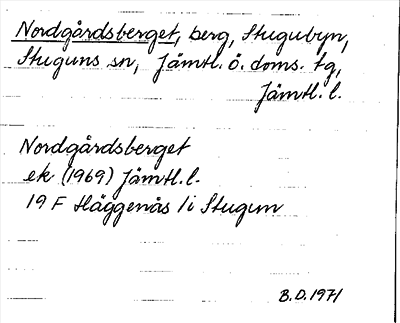 Nordgårdsberget, berg, Stugubyn,
Stuguns sn, Jämtl. ö. doms. tg,
Jämtl. l.
Nordgårdsberget
ek (1969) Jämtl. l.
19 F Häggenås 1i Stugun
B.D. 1971